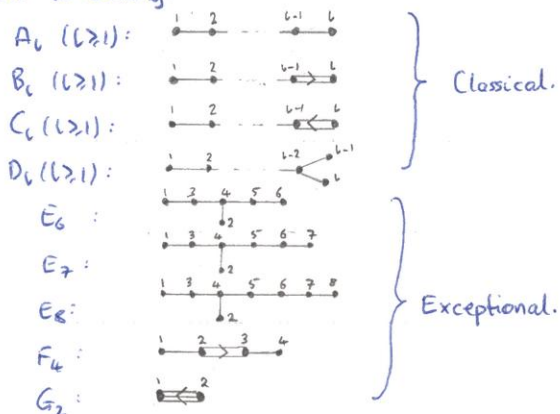 A_l (l≥1): 1 2 l-1 l
B_l (l≥1): 1 2 l-1 l
C_l (l≥1): 1 2 l-1 l
D_l (l≥1): 1 2 l-2 l-1 l
Classical.
E_6 : 1 3 4 5 6 2
E_7 : 1 3 4 5 6 7 2
E_8 : 1 3 4 5 6 7 8 2
F_4 : 1 2 3 4
G_2 : 1 2
Exceptional.